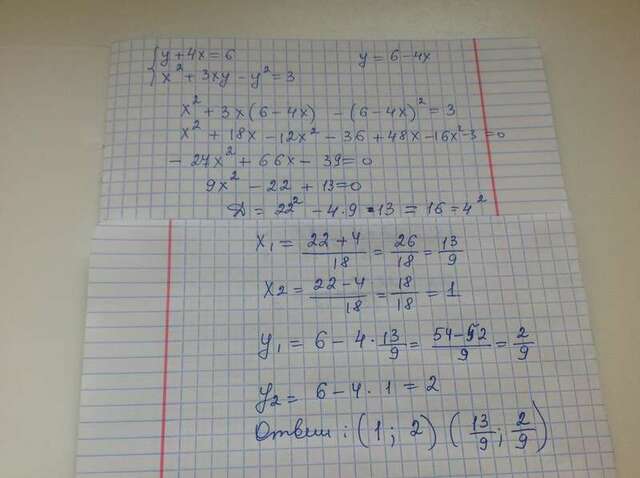 { y + 4x = 6 y = 6 - 4x
{ x² + 3xy - y² = 3
x² + 3x(6 - 4x) - (6 - 4x)² = 3
x² + 18x - 12x² - 36 + 48x - 16x² - 3 = 0
- 27x² + 66x - 39 = 0
9x² - 22 + 13 = 0
D = 22² - 4·9·13 = 16 = 4²
x₁ = (22 + 4)/18 = 26/18 = 13/9
x₂ = (22 - 4)/18 = 18/18 = 1
y₁ = 6 - 4 · 13/9 = (54 - 52)/9 = 2/9
y₂ = 6 - 4 · 1 = 2
Ответ: (1; 2) (13/9; 2/9)